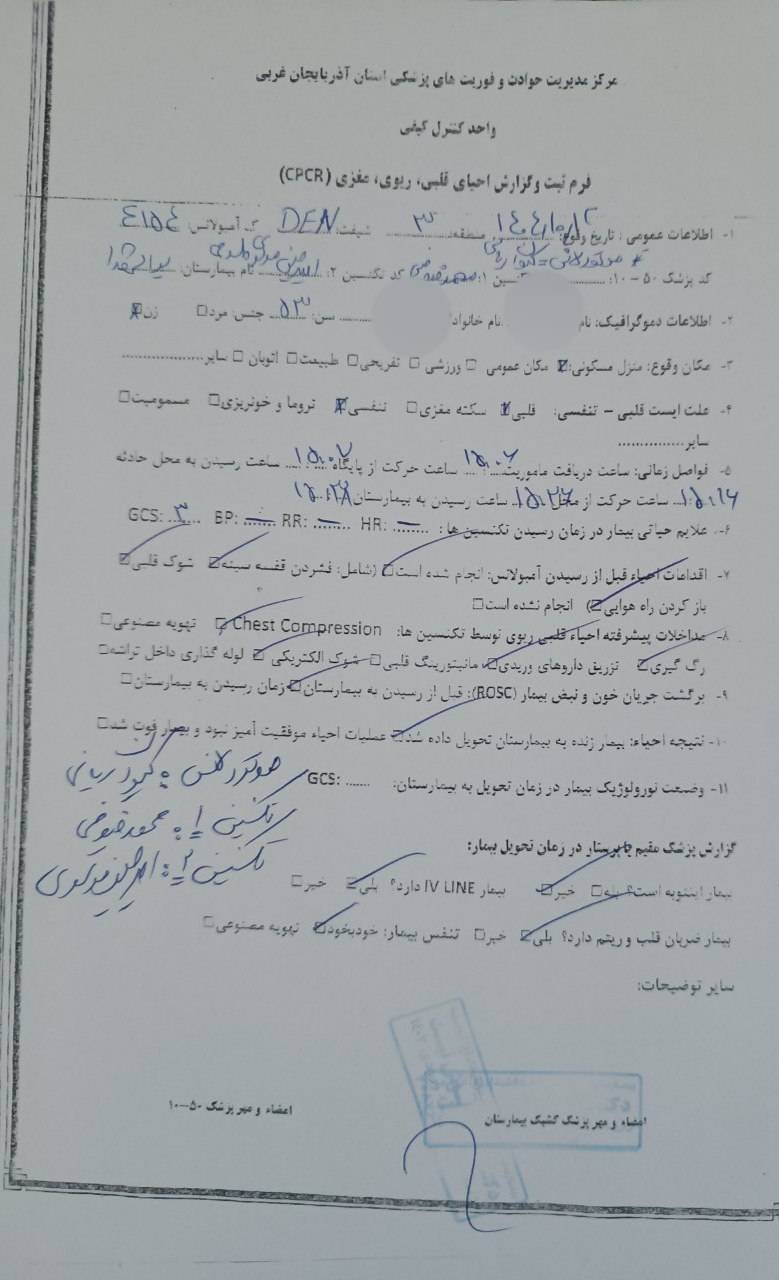 مرکز مدیریت حوادث و فوریت های پزشکی استان آذربایجان غربی
واحد کنترل کیفی
فرم ثبت وگزارش احیای قلبی، ریوی، مغزی (CPCR)
۱- اطلاعات عمومی : تاریخ وقوع: منطقه: ۳ شیفت: DEN کد آمبولانس: ۴۱۵۴
کد پزشک ۵۰-۱۰: تکنسین ۱: کد تکنسین ۲: نام بیمارستان:
۲- اطلاعات دموگرافیک: نام نام خانواد سن: ۵۳ جنس: مرد□ زن☒
۳- مکان وقوع: منزل مسکونی:☒ مکان عمومی □ ورزشی □ تفریحی□ طبیعت□ اتوبان □ سایر
۴- علت ایست قلبی - تنفسی: قلبی☒ سکته مغزی□ تنفسی☒ تروما و خونریزی□ مسمومیت□
سایر
۵- فواصل زمانی: ساعت دریافت ماموریت ۱۵:۰۶ ساعت حرکت از پایگاه ۱۵:۰۷ ساعت رسیدن به محل حادثه
ساعت حرکت از محل ساعت رسیدن به بیمارستان
۶- علایم حیاتی بیمار در زمان رسیدن تکنسین ها: HR: — RR: — BP: — GCS: ۳
۷- اقدامات احیاء قبل از رسیدن آمبولانس: انجام شده است☑ (شامل: فشردن قفسه سینه☑ شوک قلبی☑
باز کردن راه هوایی☑) انجام نشده است□
۸- مداخلات پیشرفته احیاء قلبی ریوی توسط تکنسین ها: Chest Compression ☑ تهویه مصنوعی□
رگ گیری☑ تزریق داروهای وریدی☑ مانیتورینگ قلبی□ شوک الکتریکی☑ لوله گذاری داخل تراشه□
۹- برگشت جریان خون و نبض بیمار (ROSC): قبل از رسیدن به بیمارستان☑ زمان رسیدن به بیمارستان□
۱۰- نتیجه احیاء: بیمار زنده به بیمارستان تحویل داده شد☑ عملیات احیاء موفقیت آمیز نبود و بیمار فوت شد□
۱۱- وضعیت نورولوژیک بیمار در زمان تحویل به بیمارستان: GCS: ......
تکنسین ۱:
تکنسین ۲:
گزارش پزشک مقیم یا پرستار در زمان تحویل بیمار:
بیمار اینتوبه است؟ بله□ خیر☑ بیمار IV LINE دارد؟ بلی☑ خیر□
بیمار ضربان قلب و ریتم دارد؟ بلی☑ خیر□ تنفس بیمار: خودبخود☑ تهویه مصنوعی□
سایر توضیحات:
امضاء و مهر پزشک کشیک بیمارستان
امضاء و مهر پزشک ۵۰-۱۰